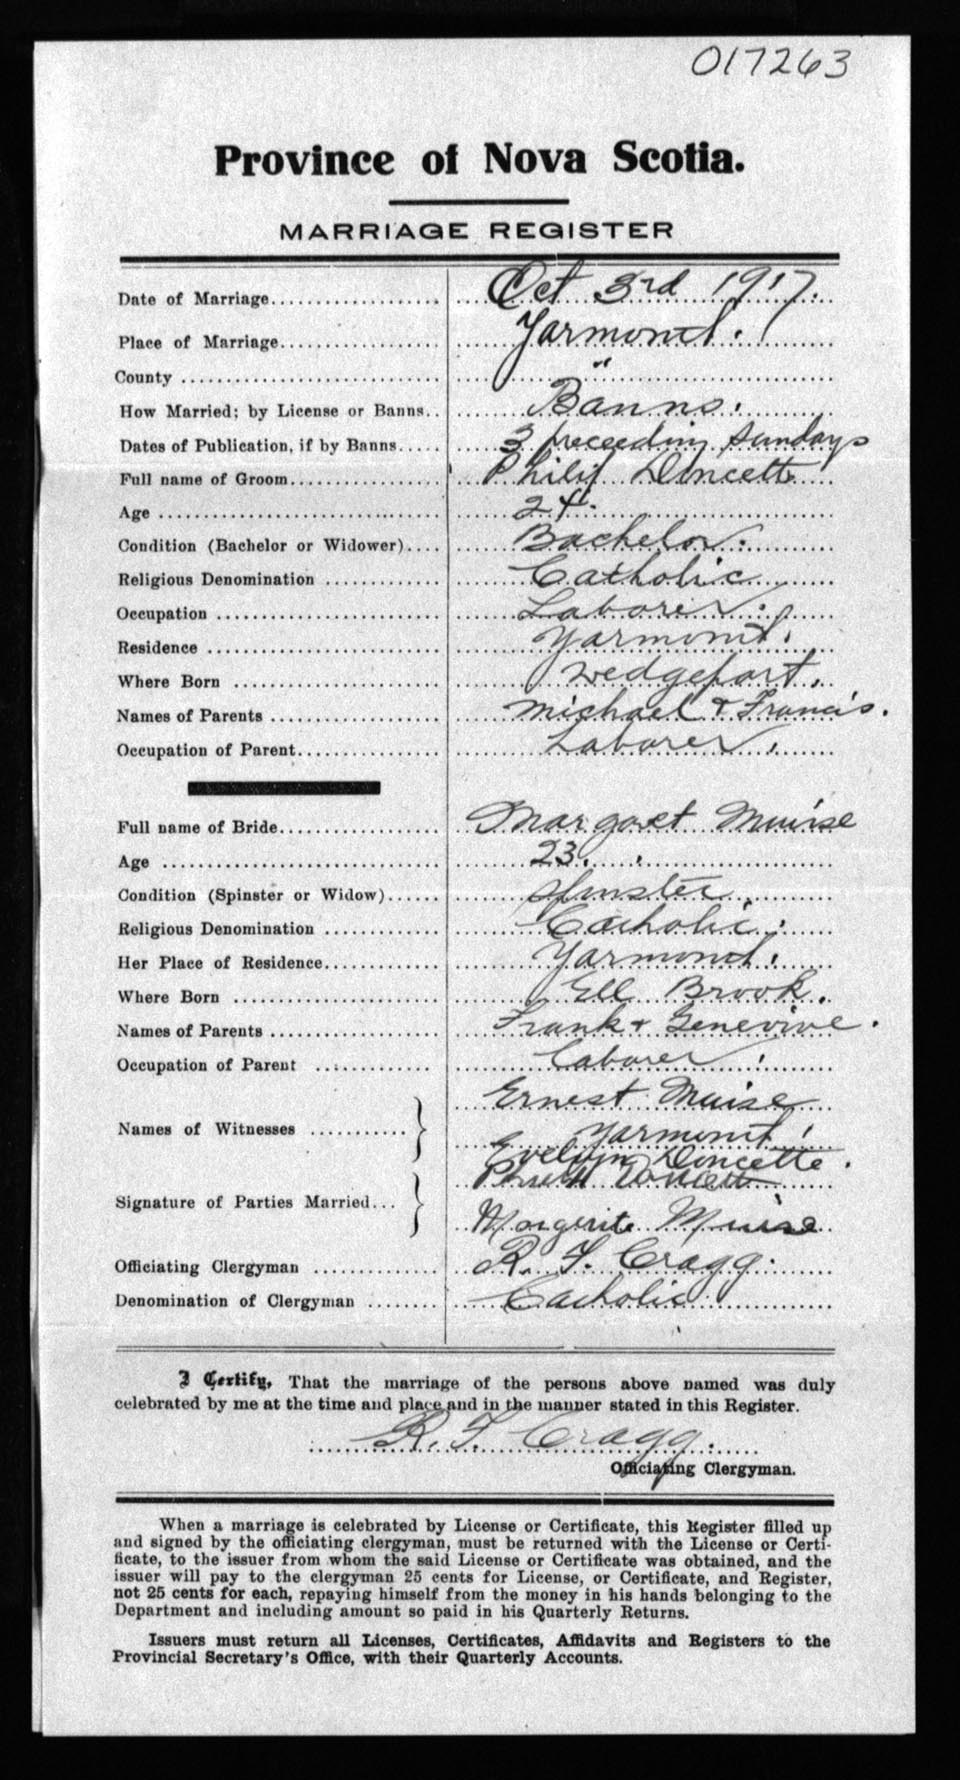 017263
Province of Nova Scotia.
MARRIAGE REGISTER
Date of Marriage Oct 3rd 1917.
Place of Marriage Yarmouth.
County "
How Married; by License or Banns Banns.
Dates of Publication, if by Banns 3 preceeding Sundays
Full name of Groom Philip Doucette
Age 24.
Condition (Bachelor or Widower) Bachelor.
Religious Denomination Catholic
Occupation Laborer.
Residence Yarmouth.
Where Born Wedgeport.
Names of Parents Michael & Francis.
Occupation of Parent Laborer.
Full name of Bride Margaret Muise
Age 23.
Condition (Spinster or Widow) Spinster.
Religious Denomination Catholic.
Her Place of Residence Yarmouth.
Where Born Eel Brook.
Names of Parents Frank & Genevive.
Occupation of Parent Laborer.
Names of Witnesses Ernest Muise
Yarmouth
Evelyn Doucette.
Signature of Parties Married Doucett
Margerite Muise
Officiating Clergyman R. F. Cragg.
Denomination of Clergyman Catholic
I Certify, That the marriage of the persons above named was duly
celebrated by me at the time and place and in the manner stated in this Register.
R. F. Cragg.
Officiating Clergyman.
When a marriage is celebrated by License or Certificate, this Register filled up
and signed by the officiating clergyman, must be returned with the License or Certi-
ficate, to the issuer from whom the said License or Certificate was obtained, and the
issuer will pay to the clergyman 25 cents for License, or Certificate, and Register,
not 25 cents for each, repaying himself from the money in his hands belonging to the
Department and including amount so paid in his Quarterly Returns.
Issuers must return all Licenses, Certificates, Affidavits and Registers to the
Provincial Secretary's Office, with their Quarterly Accounts.